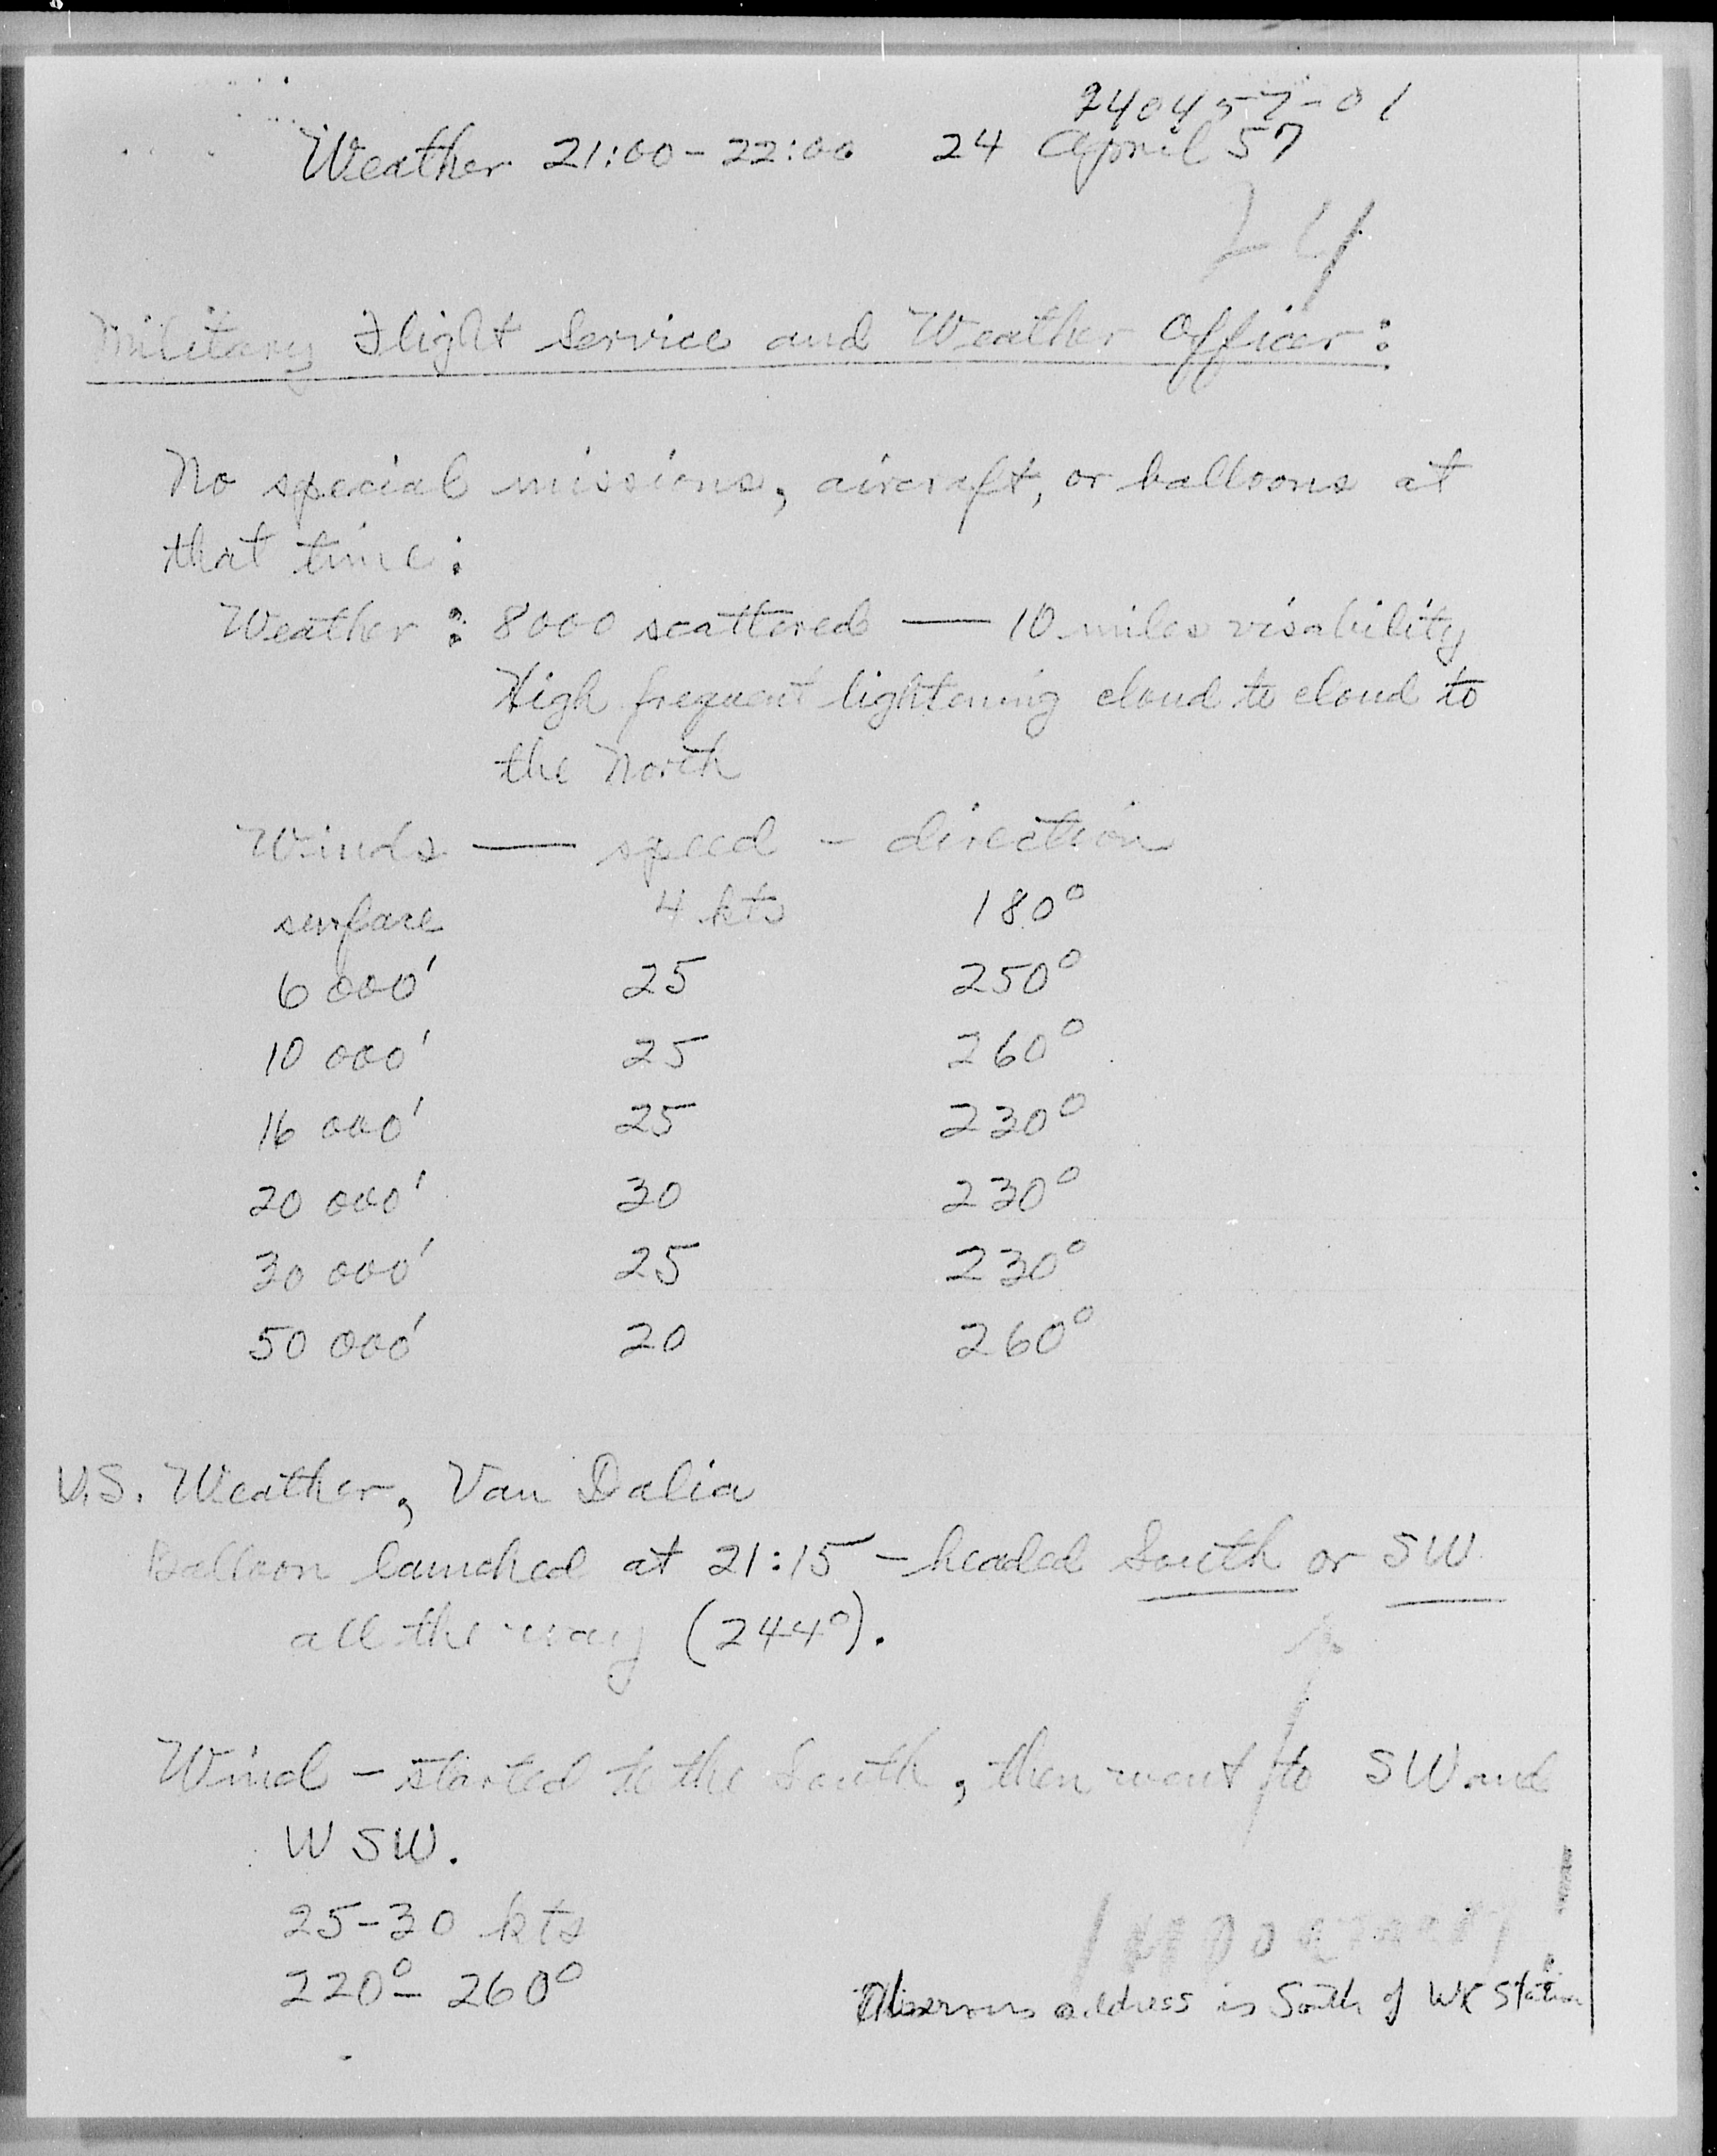 240457-01
Weather 21:00-22:00 24 April 57
24
Military Flight Service and Weather Officer:
No special missions, aircraft, or balloons at
that time:
Weather: 8000 scattered — 10 miles visability
High frequent lightening cloud to cloud to
the North
Winds — speed - direction
surface 4 kts 180°
6 000' 25 250°
10 000' 25 260°
16 000' 25 230°
20 000' 30 230°
30 000' 25 230°
50 000' 20 260°
U.S. Weather, Van Dalia
Balloon launched at 21:15 - headed South or SW
all the way (244°).
Wind - started to the South, then went to SW and
WSW.
25-30 kts
220° - 260°
Important!
Observers address is South of WX Station